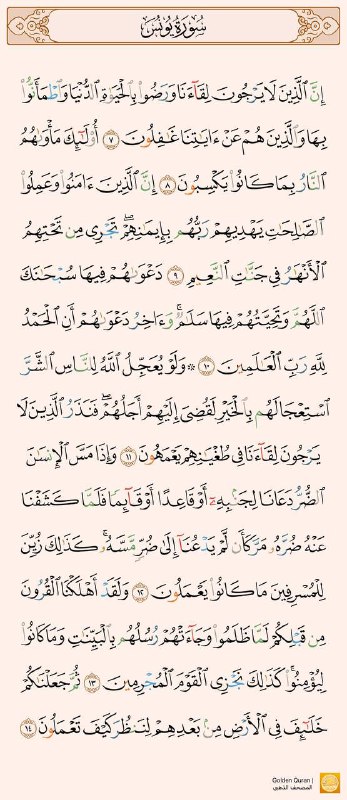 سُورَةُ يُونُسَ
إِنَّ ٱلَّذِينَ لَا يَرۡجُونَ لِقَآءَنَا وَرَضُواْ بِٱلۡحَيَوٰةِ ٱلدُّنۡيَا وَٱطۡمَأَنُّواْ
بِهَا وَٱلَّذِينَ هُمۡ عَنۡ ءَايَٰتِنَا غَٰفِلُونَ ٧ أُوْلَٰٓئِكَ مَأۡوَىٰهُمُ
ٱلنَّارُ بِمَا كَانُواْ يَكۡسِبُونَ ٨ إِنَّ ٱلَّذِينَ ءَامَنُواْ وَعَمِلُواْ
ٱلصَّٰلِحَٰتِ يَهۡدِيهِمۡ رَبُّهُم بِإِيمَٰنِهِمۡۖ تَجۡرِي مِن تَحۡتِهِمُ
ٱلۡأَنۡهَٰرُ فِي جَنَّٰتِ ٱلنَّعِيمِ ٩ دَعۡوَىٰهُمۡ فِيهَا سُبۡحَٰنَكَ
ٱللَّهُمَّ وَتَحِيَّتُهُمۡ فِيهَا سَلَٰمٞۚ وَءَاخِرُ دَعۡوَىٰهُمۡ أَنِ ٱلۡحَمۡدُ
لِلَّهِ رَبِّ ٱلۡعَٰلَمِينَ ١٠ ۞ وَلَوۡ يُعَجِّلُ ٱللَّهُ لِلنَّاسِ ٱلشَّرَّ
ٱسۡتِعۡجَالَهُم بِٱلۡخَيۡرِ لَقُضِيَ إِلَيۡهِمۡ أَجَلُهُمۡۖ فَنَذَرُ ٱلَّذِينَ لَا
يَرۡجُونَ لِقَآءَنَا فِي طُغۡيَٰنِهِمۡ يَعۡمَهُونَ ١١ وَإِذَا مَسَّ ٱلۡإِنسَٰنَ
ٱلضُّرُّ دَعَانَا لِجَنۢبِهِۦٓ أَوۡ قَاعِدًا أَوۡ قَآئِمٗا فَلَمَّا كَشَفۡنَا
عَنۡهُ ضُرَّهُۥ مَرَّ كَأَن لَّمۡ يَدۡعُنَآ إِلَىٰ ضُرّٖ مَّسَّهُۥۚ كَذَٰلِكَ زُيِّنَ
لِلۡمُسۡرِفِينَ مَا كَانُواْ يَعۡمَلُونَ ١٢ وَلَقَدۡ أَهۡلَكۡنَا ٱلۡقُرُونَ
مِن قَبۡلِكُمۡ لَمَّا ظَلَمُواْ وَجَآءَتۡهُمۡ رُسُلُهُم بِٱلۡبَيِّنَٰتِ وَمَا كَانُواْ
لِيُؤۡمِنُواْۚ كَذَٰلِكَ نَجۡزِي ٱلۡقَوۡمَ ٱلۡمُجۡرِمِينَ ١٣ ثُمَّ جَعَلۡنَٰكُمۡ
خَلَٰٓئِفَ فِي ٱلۡأَرۡضِ مِنۢ بَعۡدِهِمۡ لِنَنظُرَ كَيۡفَ تَعۡمَلُونَ ١٤
Golden Quran |
المصحف الذهبي